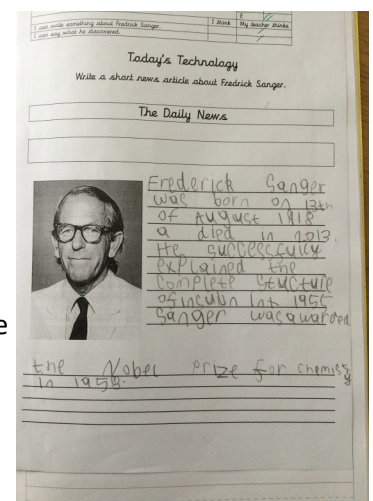 E
I can write something about Fredrick Sanger. I think My teacher thinks
I can say what he discovered.
Today's Technology
Write a short news article about Fredrick Sanger.
The Daily News
Frederick Sanger
was born on 13th
of August 1918
a died in 2013.
He successfully
explained the
complete structure
of insulin Int 1955
Sanger was awarded
e
the Nobel prize for chemisty
in 1958.